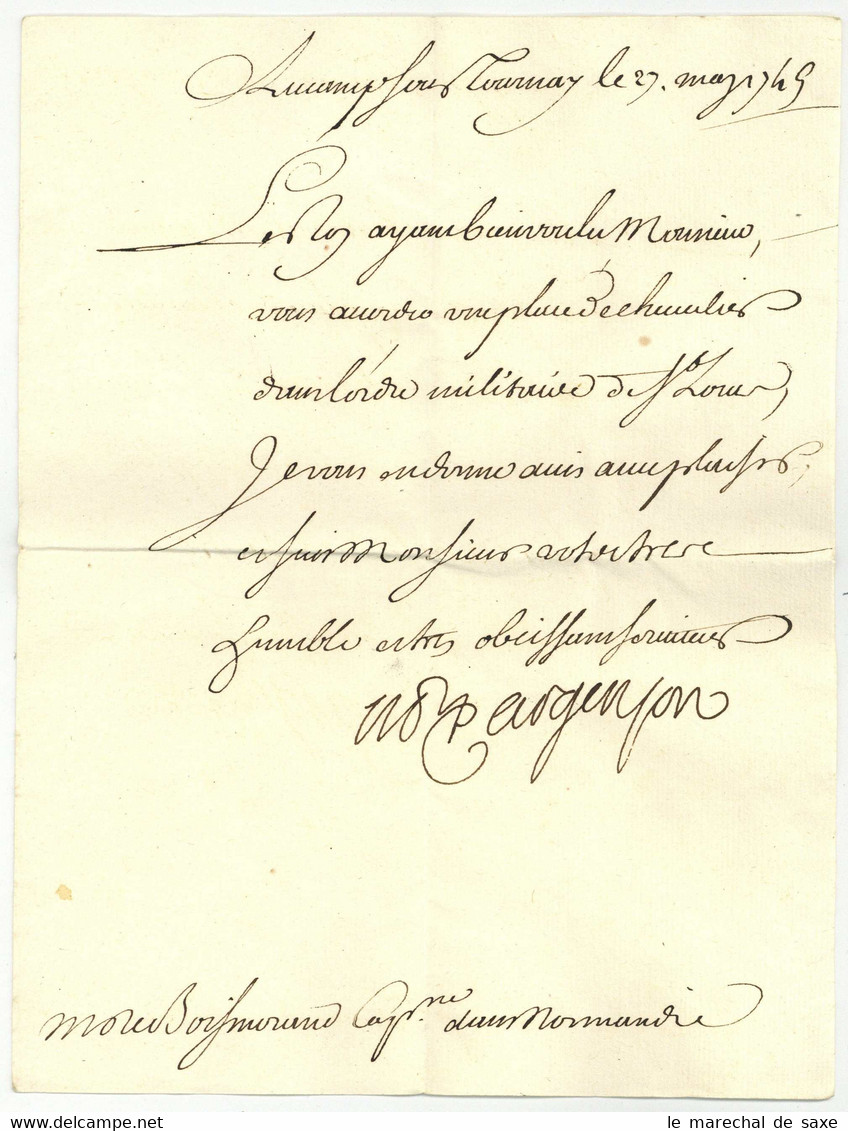 Au camp sous Tournay le 27. may 1745
Le Roy ayant bien voulu Monsieur,
vous accorder une place de chevalier
dans l'ordre militaire de St Louis,
Je vous en donne avis avec plaisir,
et suis Monsieur votre tres
humble et tres obeissant serviteur
M d'argenson
M de Boismorand Cap.ne dans Normandie
le marechal de saxe